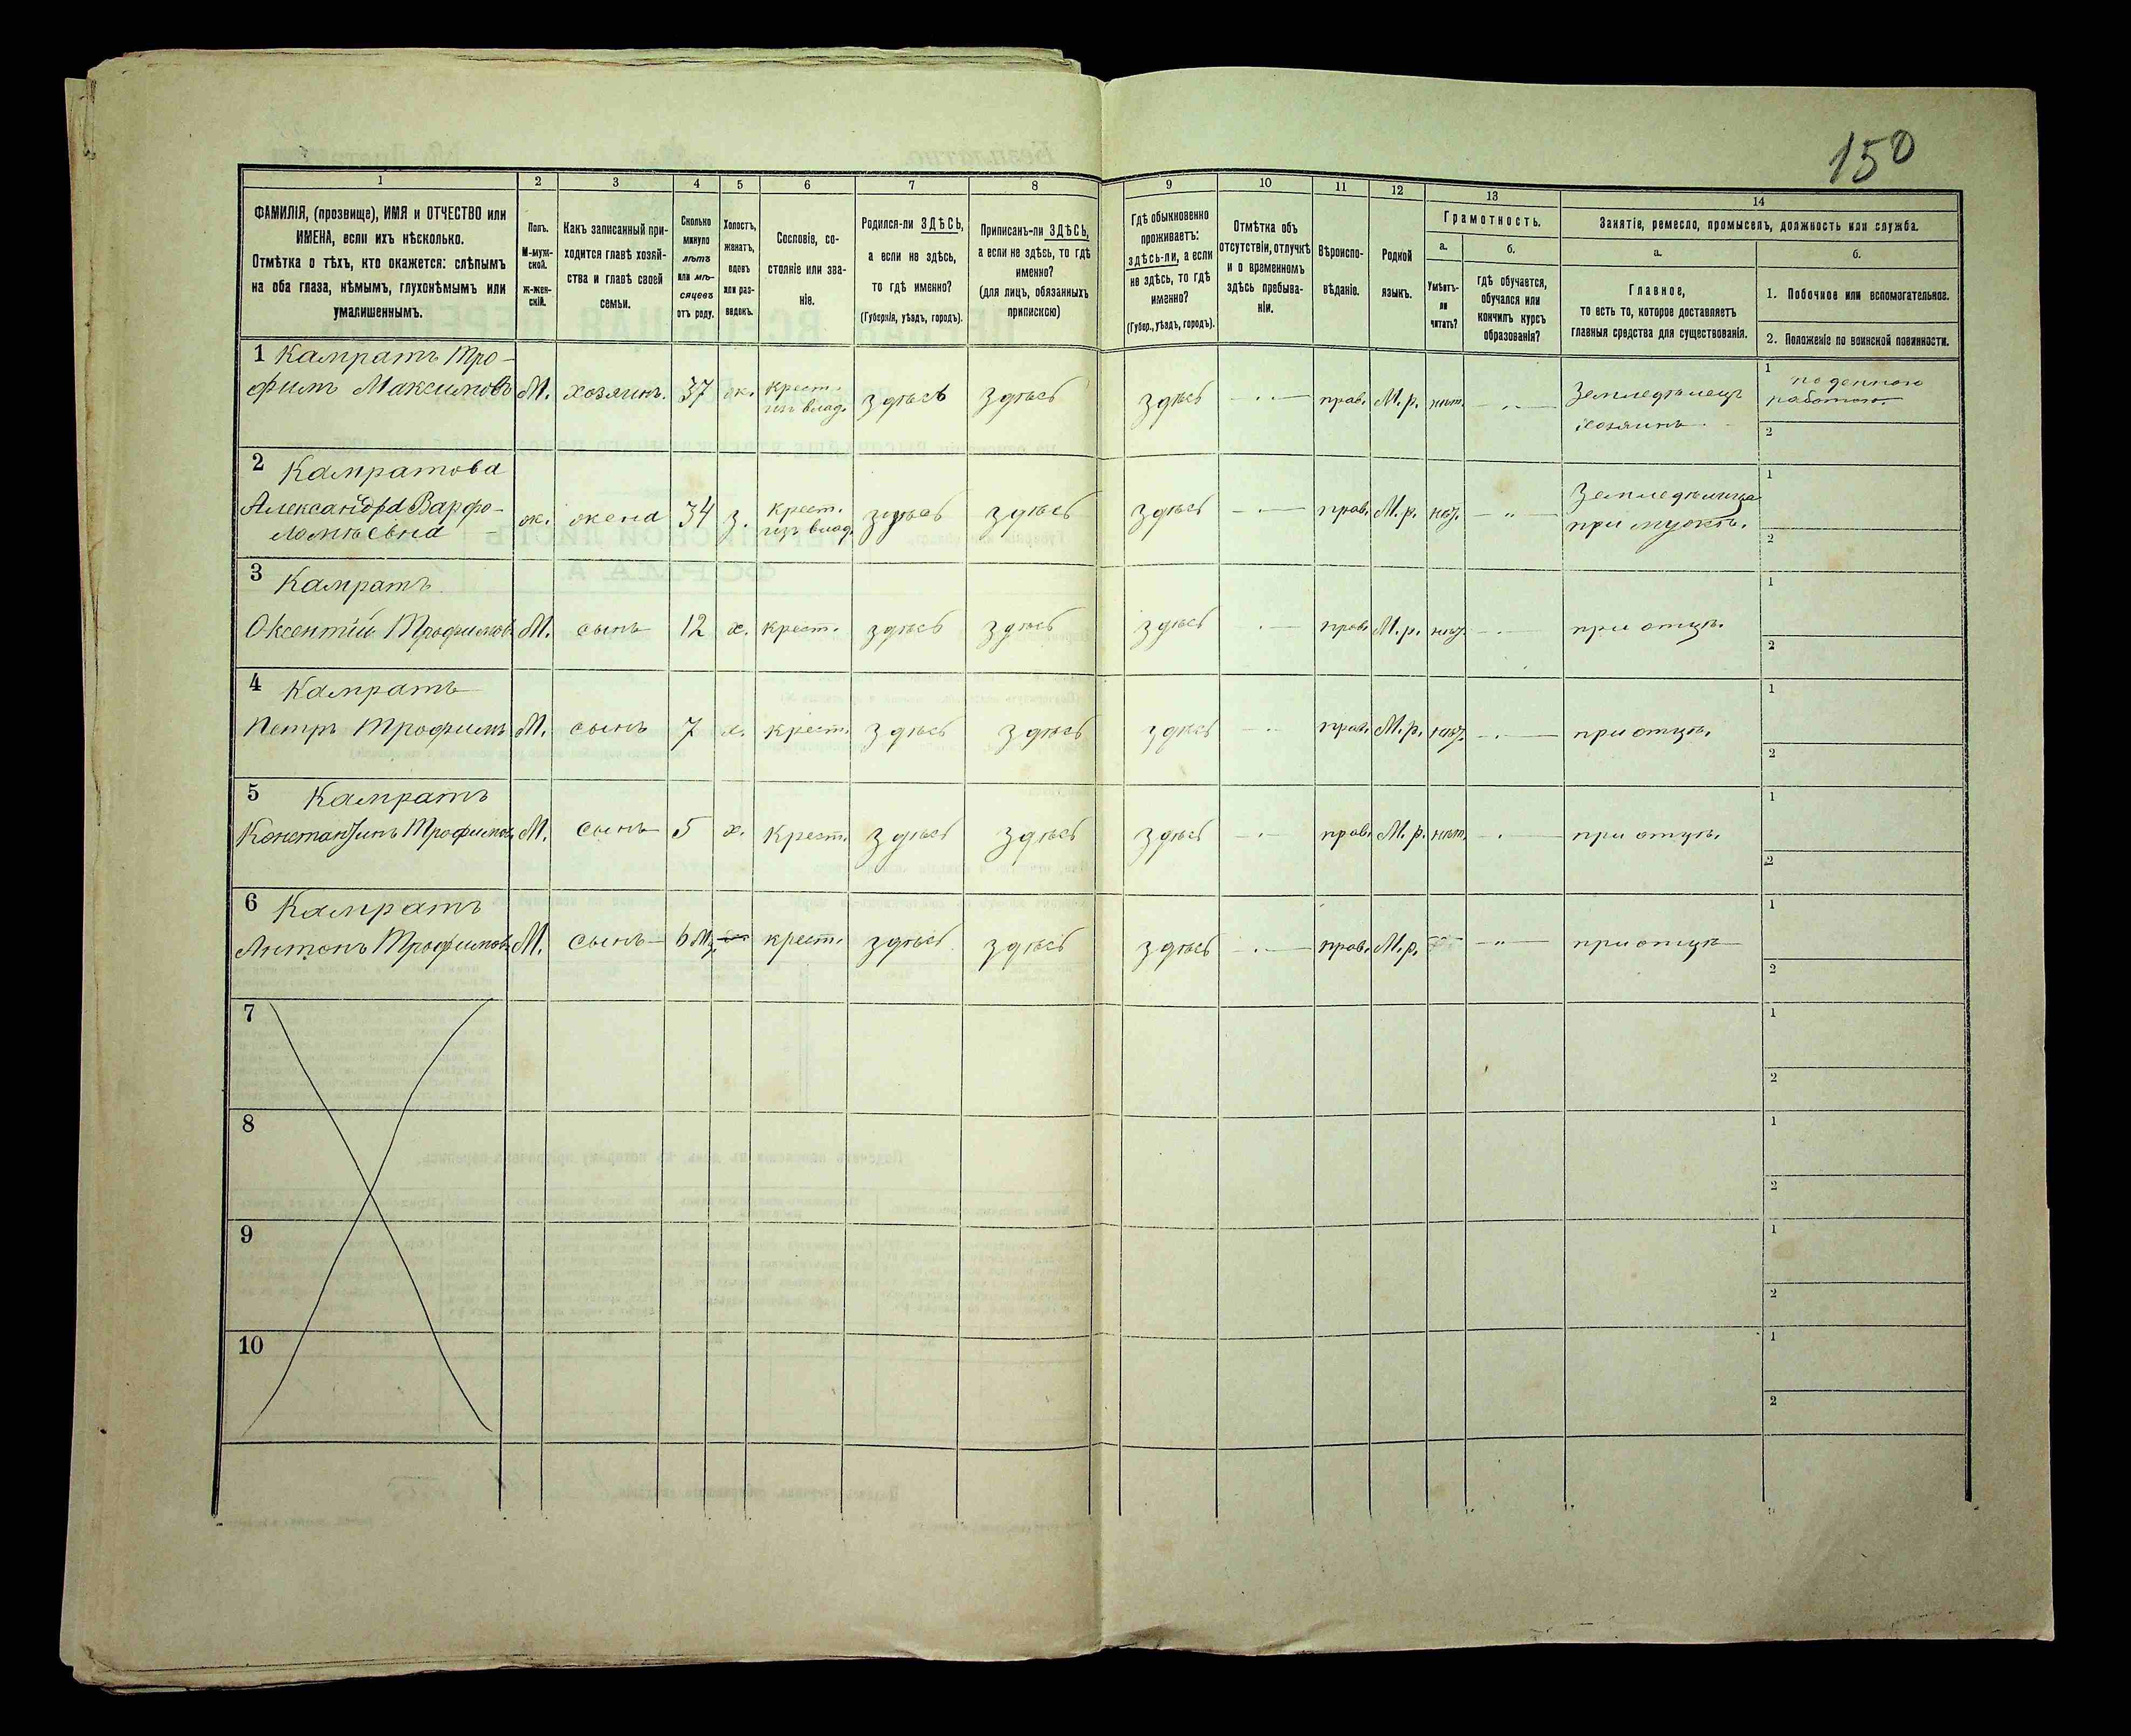 150
1 2 3 4 5 6 7 8 9 10 11 12 13 14
ФАМИЛІЯ, (прозвище), ИМЯ и ОТЧЕСТВО или
ИМЕНА, если ихъ нѣсколько.
Отмѣтка о тѣхъ, кто окажется: слѣпымъ
на оба глаза, нѣмымъ, глухонѣмымъ или
умалишеннымъ.
Полъ.
М-муж-
ской.
ж-жен-
скій.
Какъ записанный при-
ходится главѣ хозяй-
ства и главѣ своей
семьи.
Сколько
минуло
лѣтъ
или мѣ-
сяцевъ
отъ роду.
Холостъ,
женатъ,
вдовъ
или раз-
веденъ.
Сословіе, со-
стояніе или зва-
ніе.
Родился-ли ЗДѢСЬ,
а если не здѣсь,
то гдѣ именно?
(Губернія, уѣздъ, городъ).
Приписанъ-ли ЗДѢСЬ,
а если не здѣсь, то гдѣ
именно?
(для лицъ, обязанныхъ
припискою)
Гдѣ обыкновенно
проживаетъ:
здѣсь-ли, а если
не здѣсь, то гдѣ
именно?
(Губер., уѣздъ, городъ).
Отмѣтка объ
отсутствіи, отлучкѣ
и о временномъ
здѣсь пребыва-
ніи.
Вѣроиспо-
вѣданіе.
Родной
языкъ.
Грамотность.
а. б.
Умѣетъ-
ли
читать?
гдѣ обучается,
обучался или
кончилъ курсъ
образованія?
Занятіе, ремесло, промыселъ, должность или служба.
а. б.
Главное,
то есть то, которое доставляетъ
главныя средства для существованія.
1. Побочное или вспомогательное.
2. Положеніе по воинской повинности.
1 Кампратъ Тро-
фимъ Максимовъ М. хозяинъ. 37 ж. крест. изъ влад. здѣсь здѣсь здѣсь прав. М.р. нѣт. Земледѣлецъ хозяинъ 1 поденною работою. 2
2 Кампратова
Александра Варфо-
ломѣевна ж. жена 34 з. крест. изъ влад. здѣсь здѣсь здѣсь прав. М.р. нѣт. Земледѣлица при мужѣ. 1 2
3 Кампратъ
Оксентій Трофимов М. сынъ 12 х. крест. здѣсь здѣсь здѣсь прав. М.р. нѣт. при отцѣ. 1 2
4 Кампратъ
Петръ Трофимъ М. сынъ 7 х. крест. здѣсь здѣсь здѣсь прав. М.р. нѣт. при отцѣ. 1 2
5 Кампратъ
Константинъ Трофимов М. сынъ 5 х. крест. здѣсь здѣсь здѣсь прав. М.р. нѣт. при отцѣ. 1 2
6 Кампратъ
Антонъ Трофимовъ М. сынъ 6 М. крест. здѣсь здѣсь здѣсь прав. М.р. при отцѣ 1 2
7 1 2
8 1 2
9 1 2
10 1 2